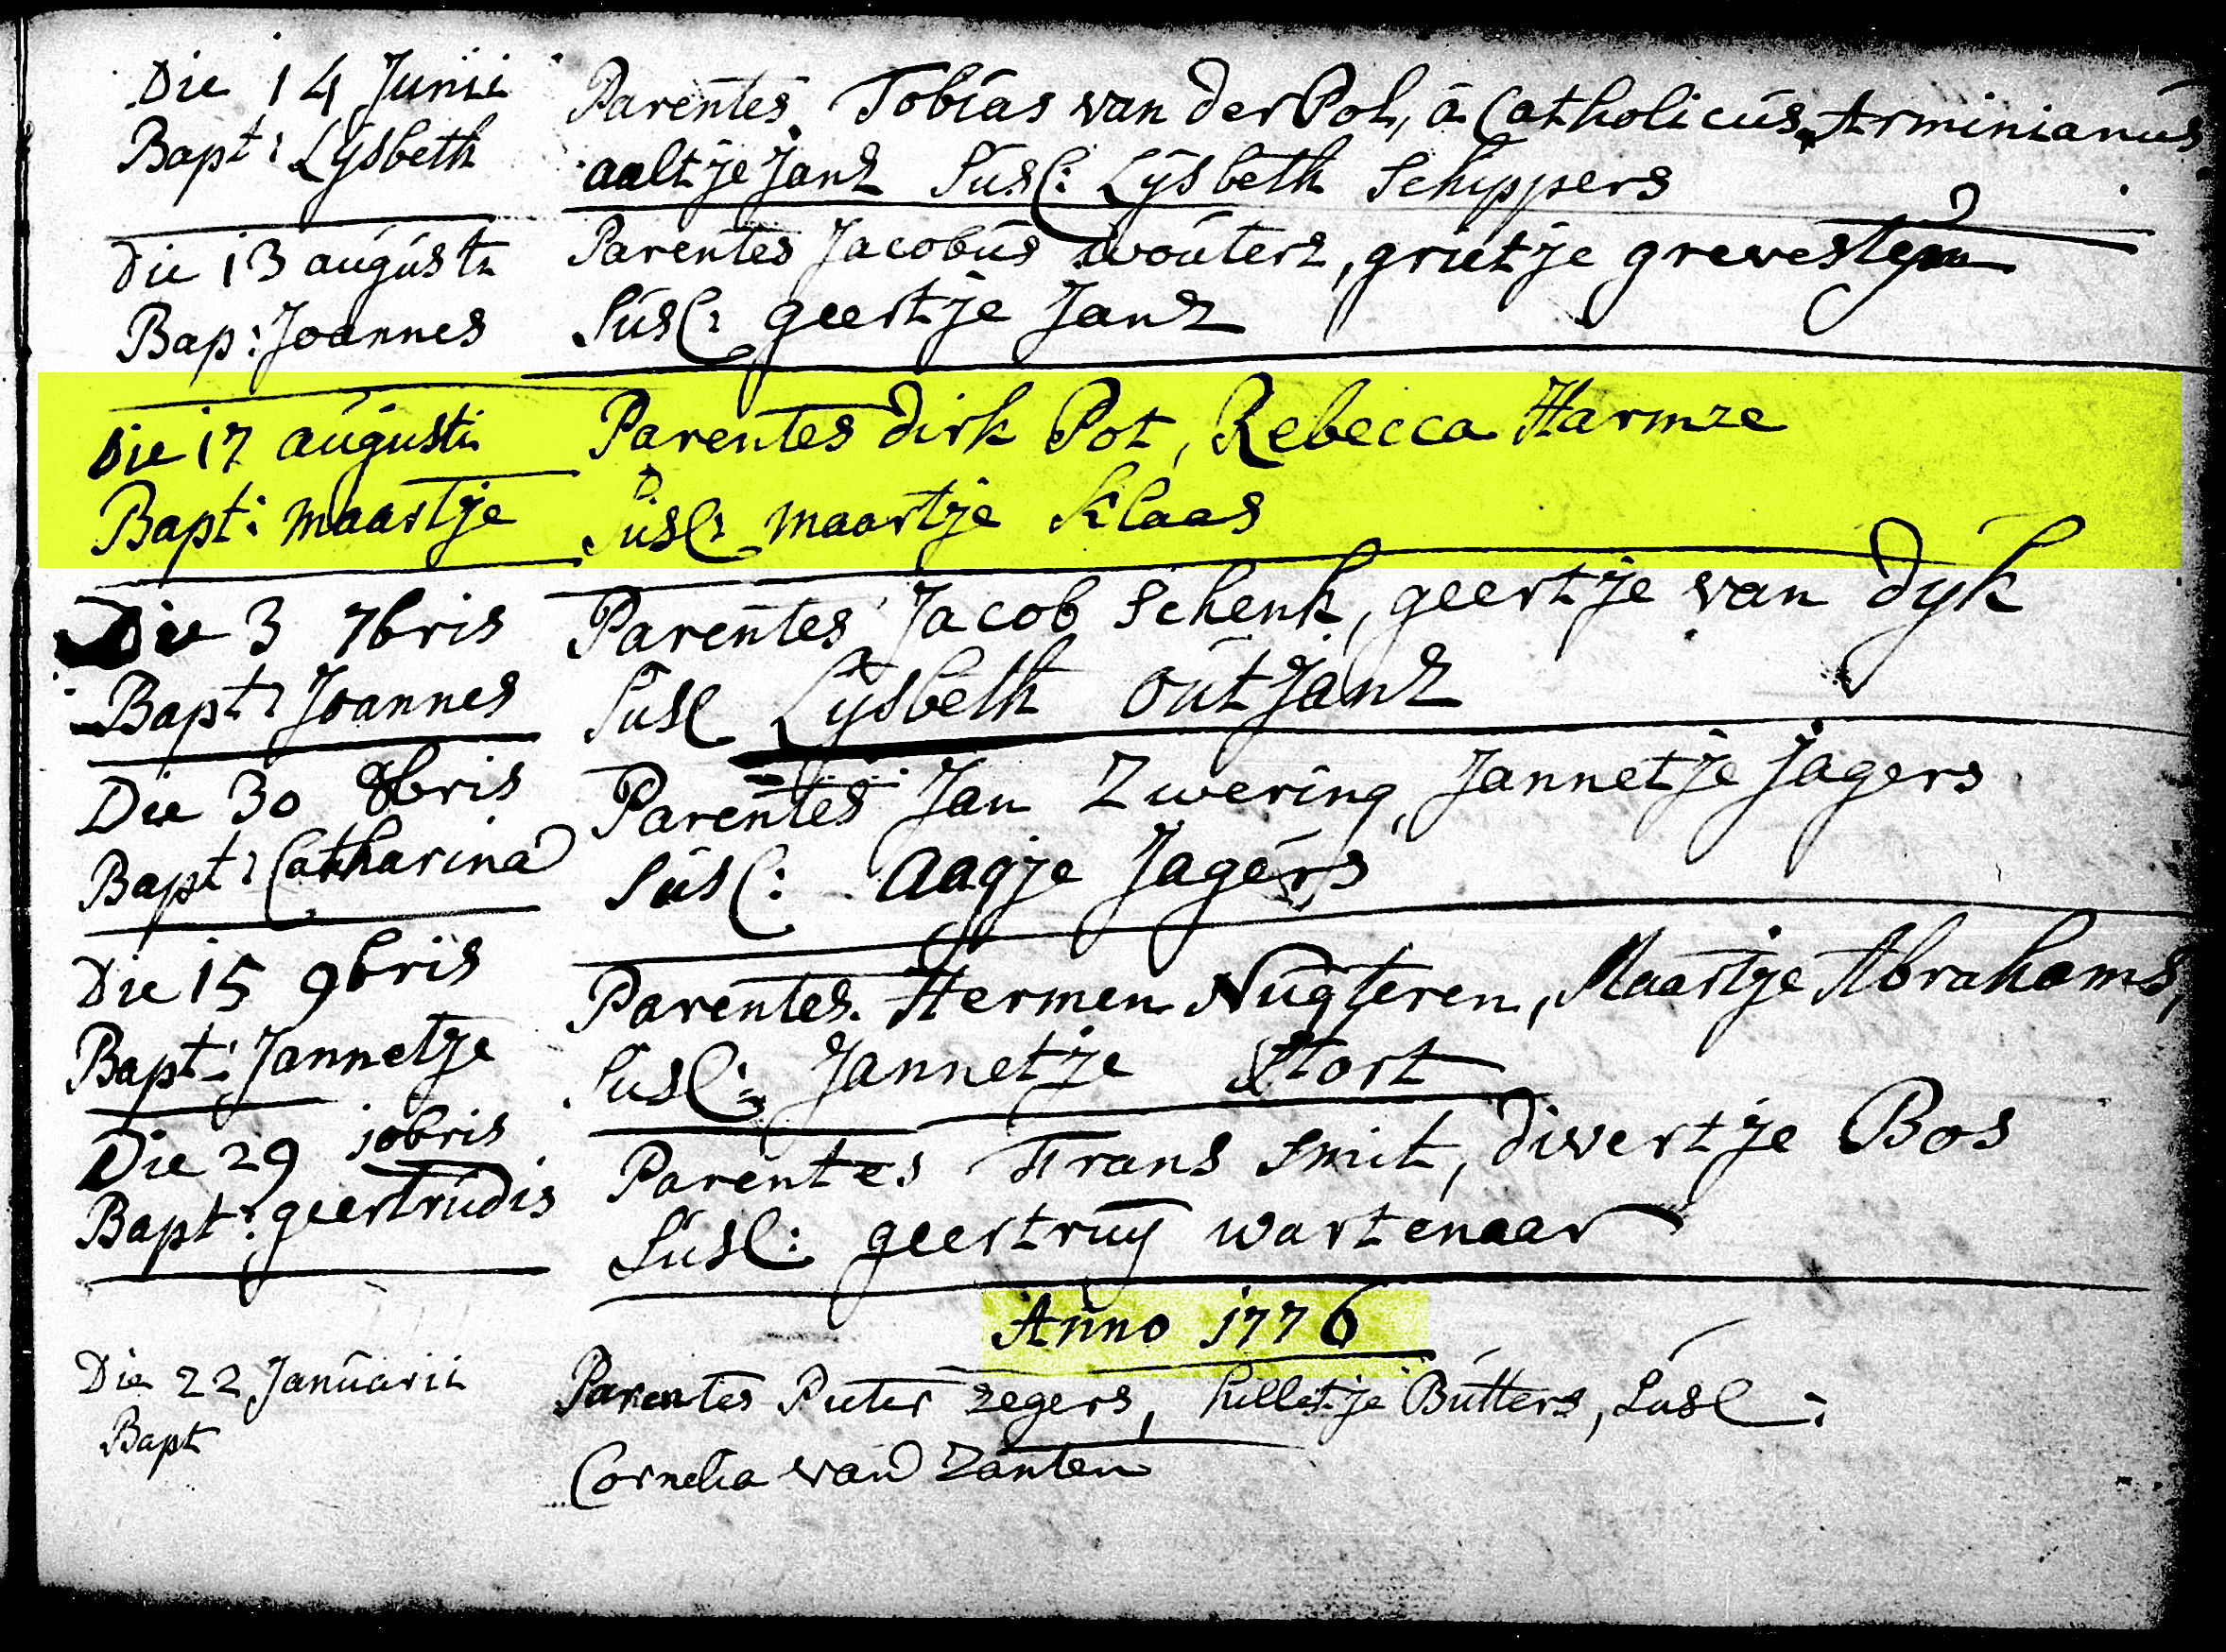 Die 14 Junii
Bapt: Lÿsbeth
Parentes Tobias van der Pol, a Catholicus Arminianus
aaltje Janz Susc: Lÿsbeth Schippers
Die 13 augusti
Bap: Joannes
Parentes Jacobus wouterz, grietje
Susc: geertje Janz
Die 17 augusti
Bapt: maartje
Parentes dirk Pot, Rebecca Harmze
Susc: maartje Klaas
Die 3 7bris
Bapt: Joannes
Parentes Jacob Schenk, geertje van dyk
Susc Lÿsbeth outJanz
Die 30 8bris
Bapt: Catharina
Parentes Jan Zwering, Jannetje Jagers
Susc: aagje Jagers
Die 15 9bris
Bapt: Jannetje
Parentes Hermen Nugteren, Maartje Abrahams,
Susc: Jannetje Stort
Die 29 10bris
Bapt: geertrudis
Parentes Frans Smit, divertje Bos
Susc: geertruÿ wartenaar
Anno 1776
Die 22 Januarii
Bapt
Parentes Pieter zegers, hilletje Butters, Susc:
Cornelia van Zanten